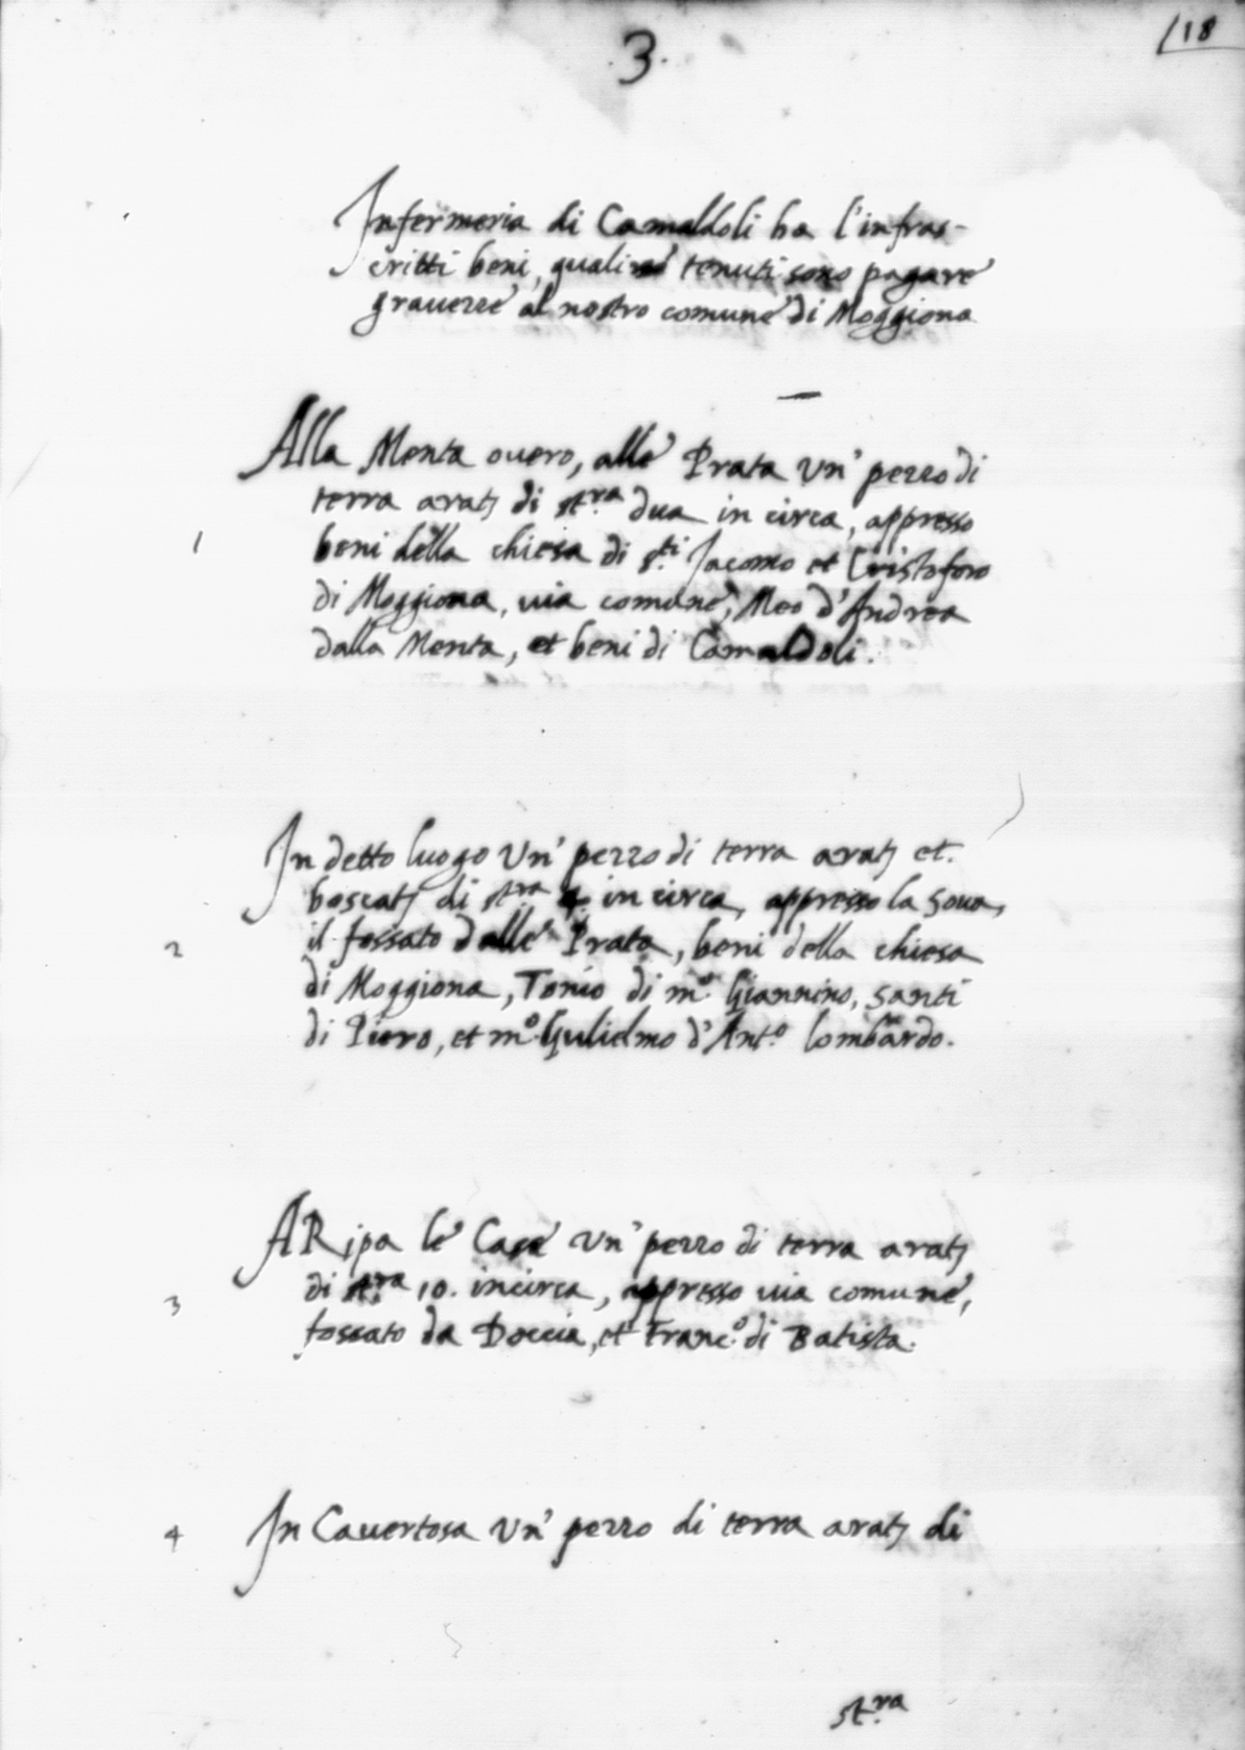 118
.3.
Infermeria di Camaldoli ha l'infras-
critti beni, quali tenuti sono pagare
grauezze al nostro comune di Moggiona
Alla Menta ouero, alle Prata un' pezzo di
terra arat; di st.ra dua in circa, appresso
1
beni della chiesa di s.ti Jacomo et Cristoforo
di Moggiona, uia comune, Meo d'Andrea
dalla Menta, et beni di Camaldoli.
In detto luogo un' pezzo di terra arat; et.
boscat; di st.ra 4 in circa, appresso la soua,
2
il fossato dalle Prata, beni della chiesa
di Moggiona, Tonio di m.o Giannino, santi
di Piero, et m.o Gulielmo d'Ant.o lombardo.
A Ripa le Case un' pezzo di terra arat;
3
di st.ra 10. incirca, appresso uia comune,
fossato da Doccia, et Franc.o di Batista.
4 In Cauertosa un' pezzo di terra arat; di
st.ra